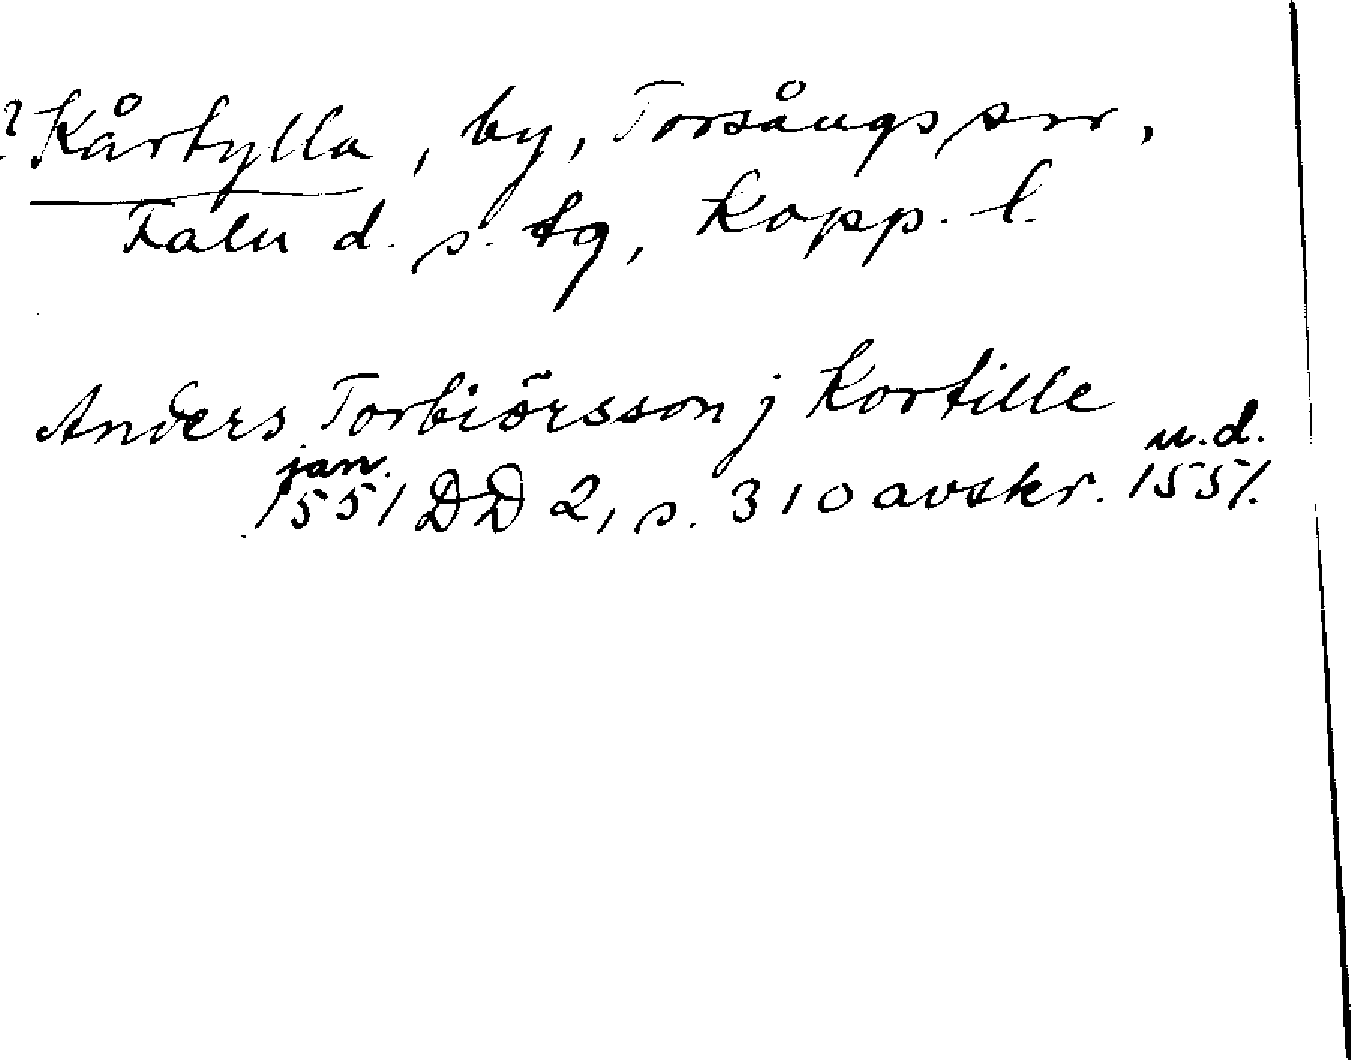 ? Kårtylla, by, Torsångs snr,
Falu d. s. tg, Kopp. l.
Anders Torbiörsson j Kortille
jan. u.d.
1551 DD 2, s. 310 avskr. 1551.